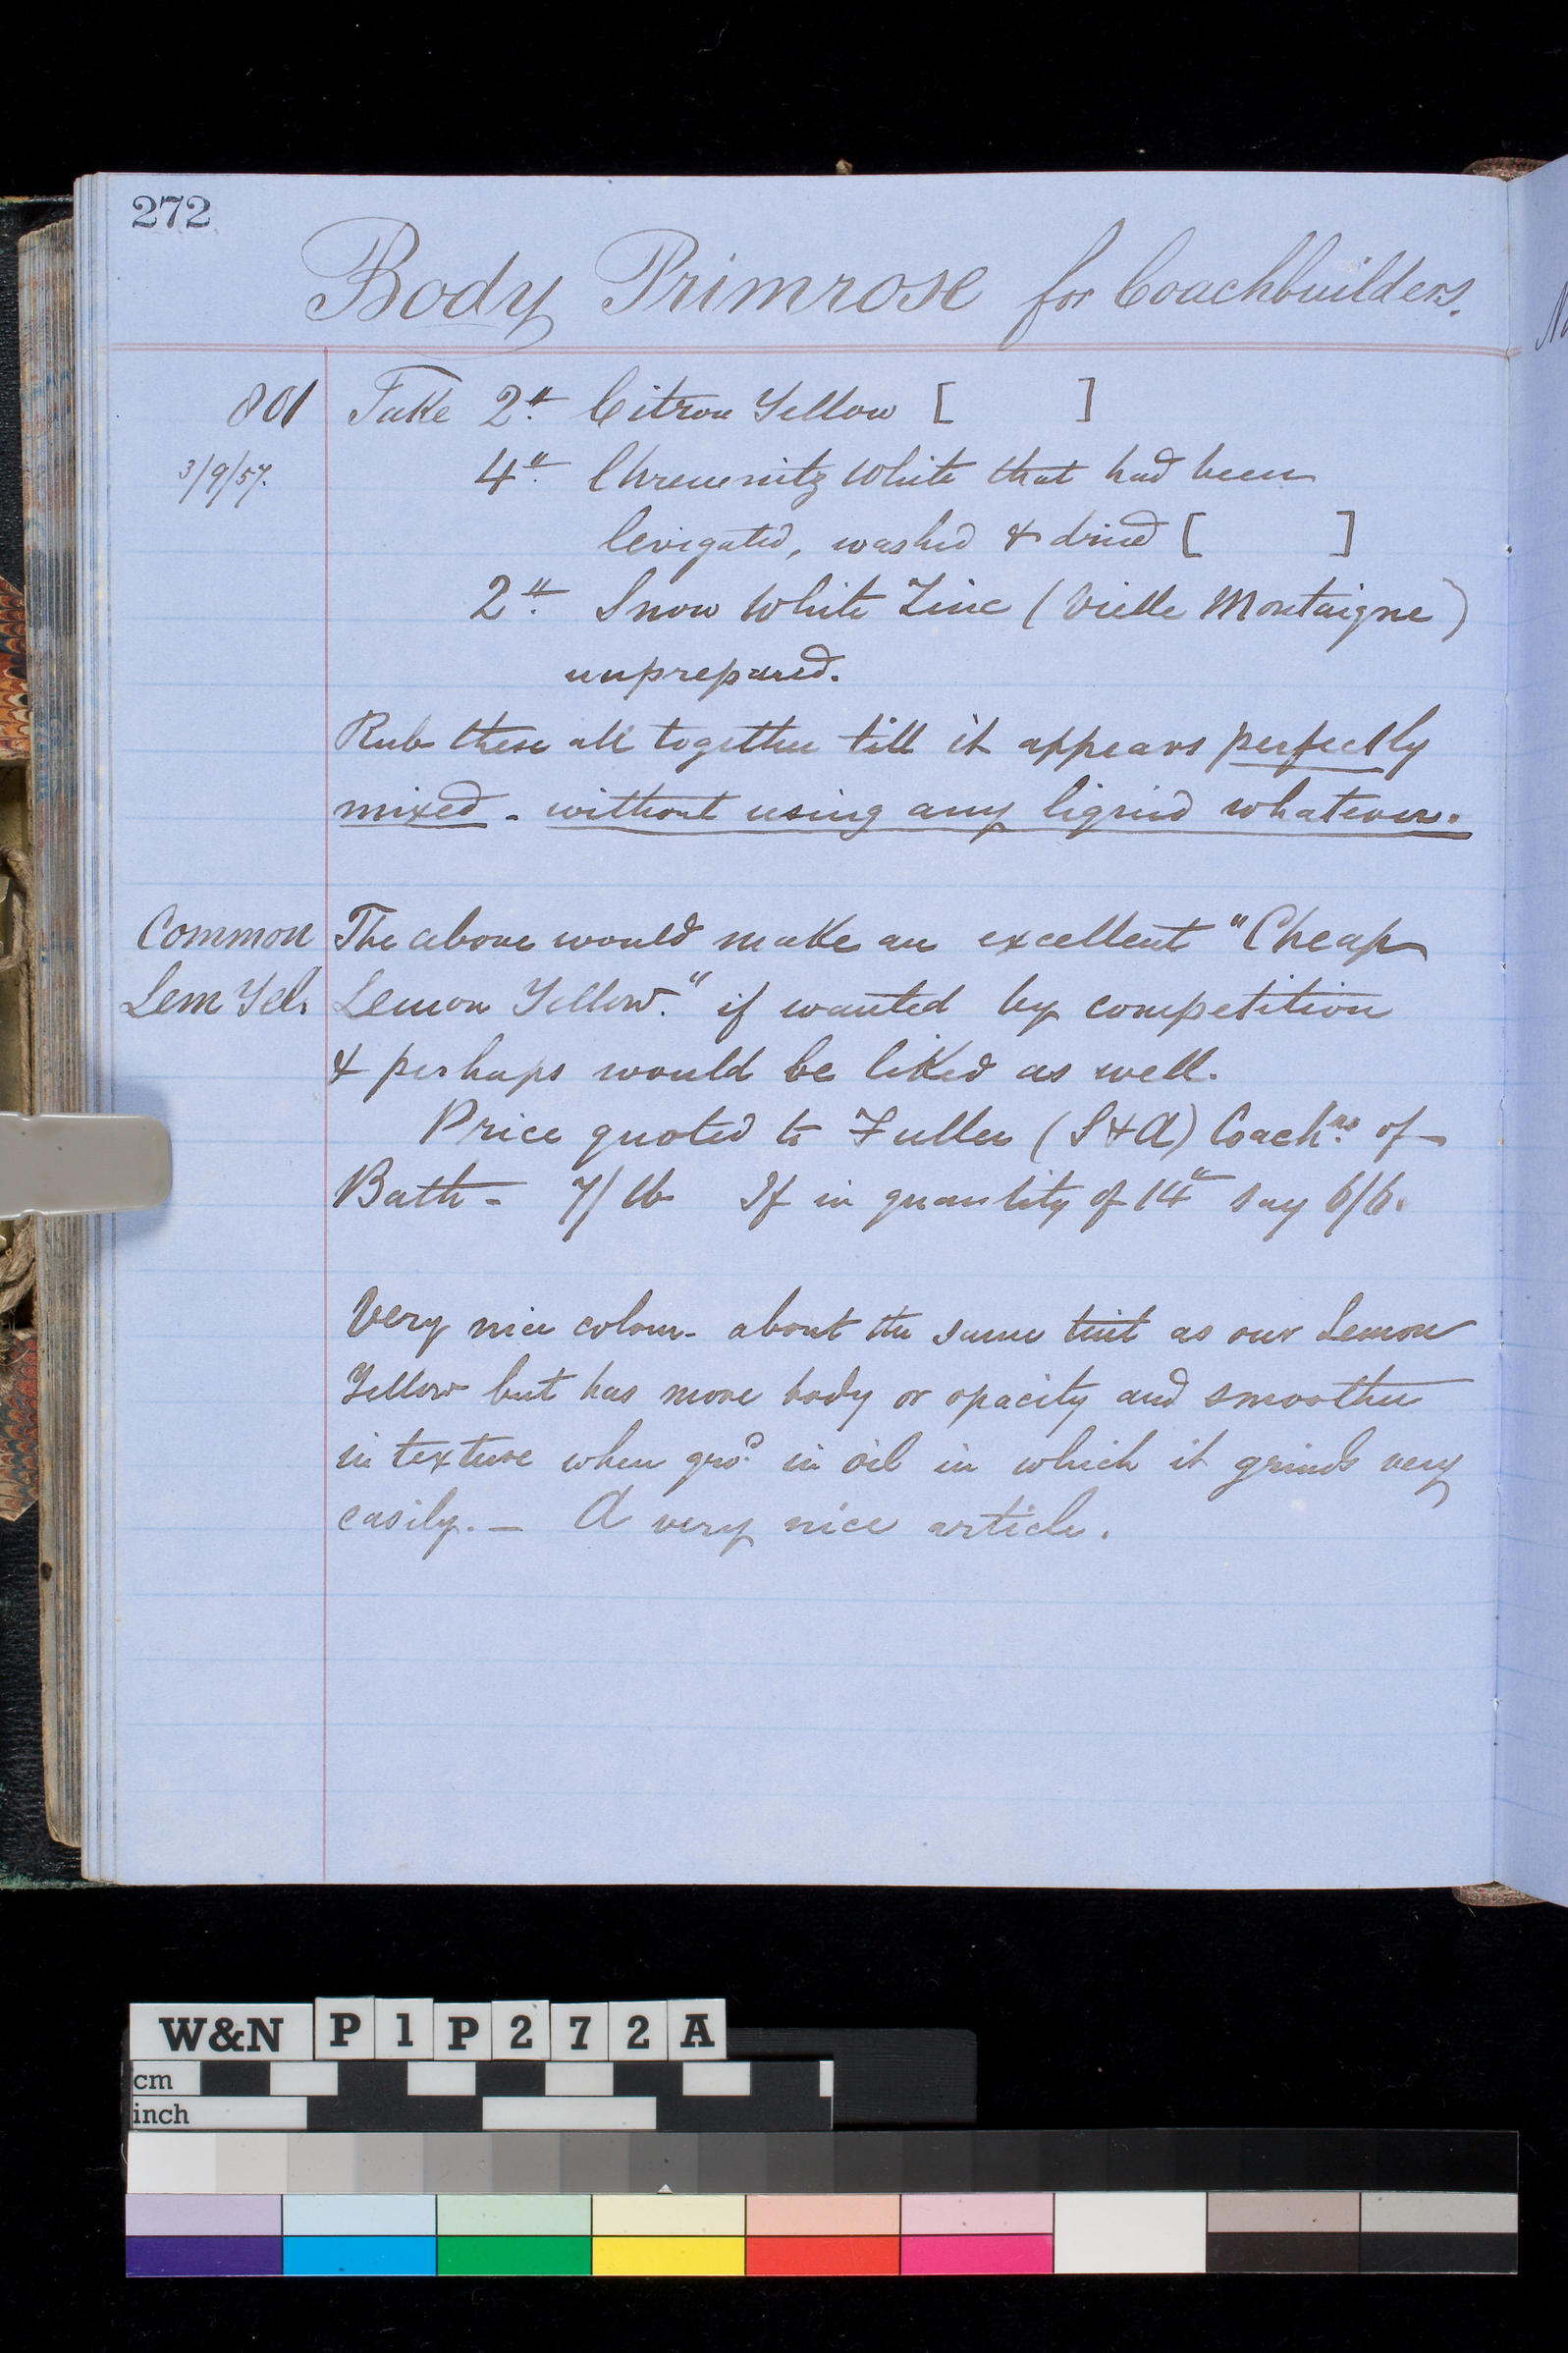 272
Body Primrose for Coachbuilders.
801 Take 2℔ Citron Yellow [ ]
3/9/57. 4℔ Chremnitz White that had been
levigated, washed & dried [ ]
2℔ Snow White Zinc (Vielle Montaigne)
unprepared.
Rub these all together till it appears perfectly
mixed - without using any liquid whatever.
Common The above would make an excellent "Cheap
Lem Yel. Lemon Yellow." if wanted by competition
& perhaps would be liked as well.
Price quoted to Fuller (S & A) Coach.rs of
Bath - 7/ lb If in quantity of 14℔ say 6/6.
Very nice colour - about the same tint as our Lemon
Yellow but has more body or opacity and smoother
in texture when gro.d in oil in which it grinds very
easily. — A very nice article.
W&N P1P272A
cm
inch